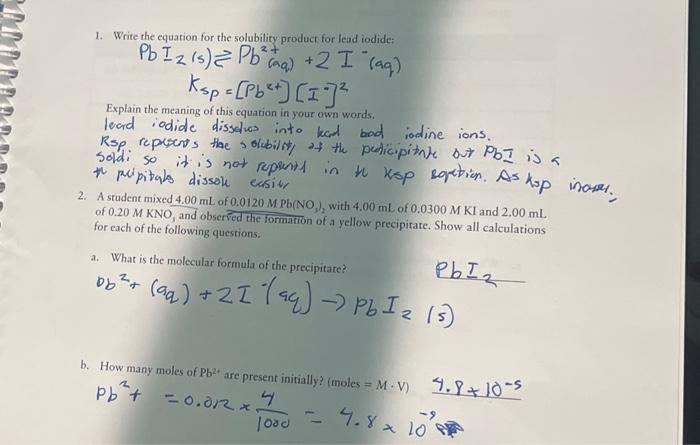 1. Write the equation for the solubility product for lead iodide:
PbI2(s) ⇌ Pb2+(aq) + 2I-(aq)
Ksp = [Pb2+][I-]2
Explain the meaning of this equation in your own words.
lead iodide dissolves into lead iodine ions.
Ksp represents the solubility of the but PbI is a
soldi so it is not in Ksp As Ksp
dissolve easier
2. A student mixed 4.00 mL of 0.0120 M Pb(NO3)2 with 4.00 mL of 0.0300 M KI and 2.00 mL
of 0.20 M KNO3 and observed the formation of a yellow precipitate. Show all calculations
for each of the following questions.
a. What is the molecular formula of the precipitate? PbI2
Pb2+(aq) + 2I-(aq) → PbI2(s)
b. How many moles of Pb2+ are present initially? (moles = M · V) 4.8 × 10-5
Pb2+ = 0.012 × 4/1000 = 4.8 × 10